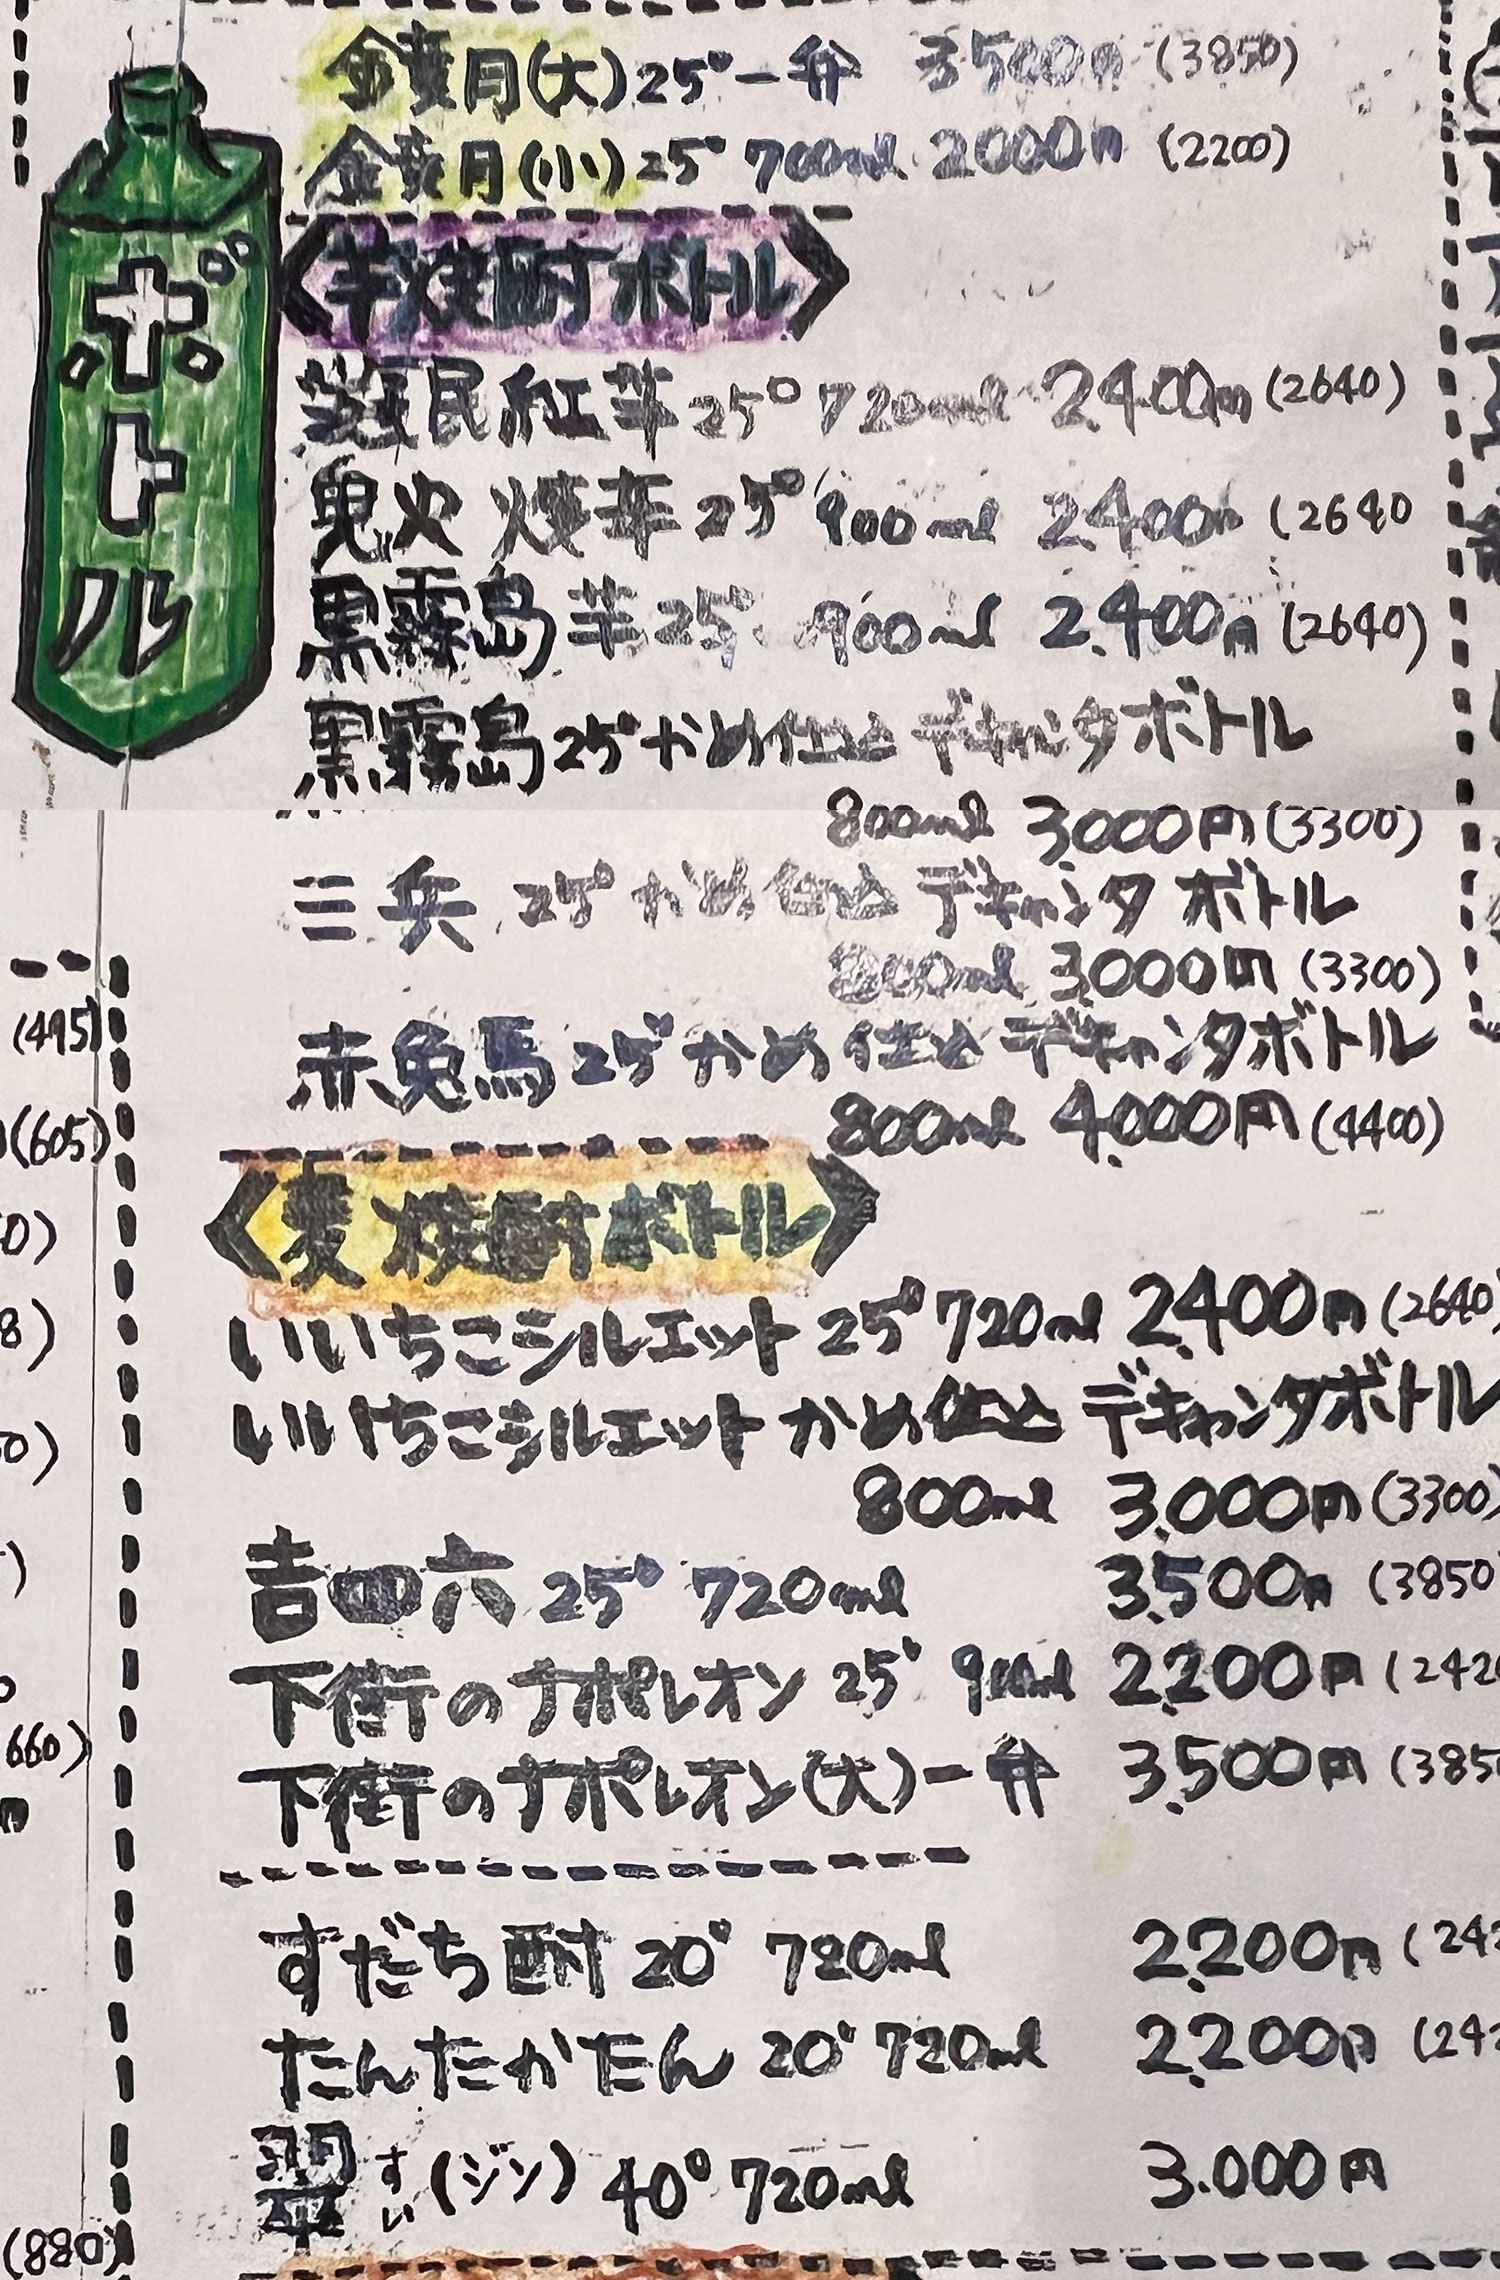 ボトル
金黄月(大)25°一升 3500円 (3850)
金黄月(小)25° 700ml 2000円 (2200)
〈芋焼酎ボトル〉
農民紅芋 25° 720ml 2400円 (2640)
鬼火 焼芋 25° 900ml 2400円 (2640
黒霧島 芋 25° 900ml 2.400円 (2640)
黒霧島 25° かめ仕込 デキャンタボトル
800ml 3.000円 (3300)
三兵 25° かめ仕込 デキャンタボトル
800ml 3.000円 (3300)
赤兎馬 25° かめ仕込 デキャンタボトル
800ml 4.000円 (4400)
〈麦焼酎ボトル〉
いいちこシルエット 25° 720ml 2.400円 (2640)
いいちこシルエット かめ仕込 デキャンタボトル
800ml 3.000円 (3300)
吉四六 25° 720ml 3.500円 (3850
下街のナポレオン 25° 900ml 2.200円 (242
下街のナポレオン(大)一升 3.500円 (385
すだち酎 20° 720ml 2.200円 (242
たんたかたん 20° 720ml 2.200円 (242
翠 すい (ジン) 40° 720ml 3.000円
(495)
(605)
0)
8)
0)
)
660)
円
(880)